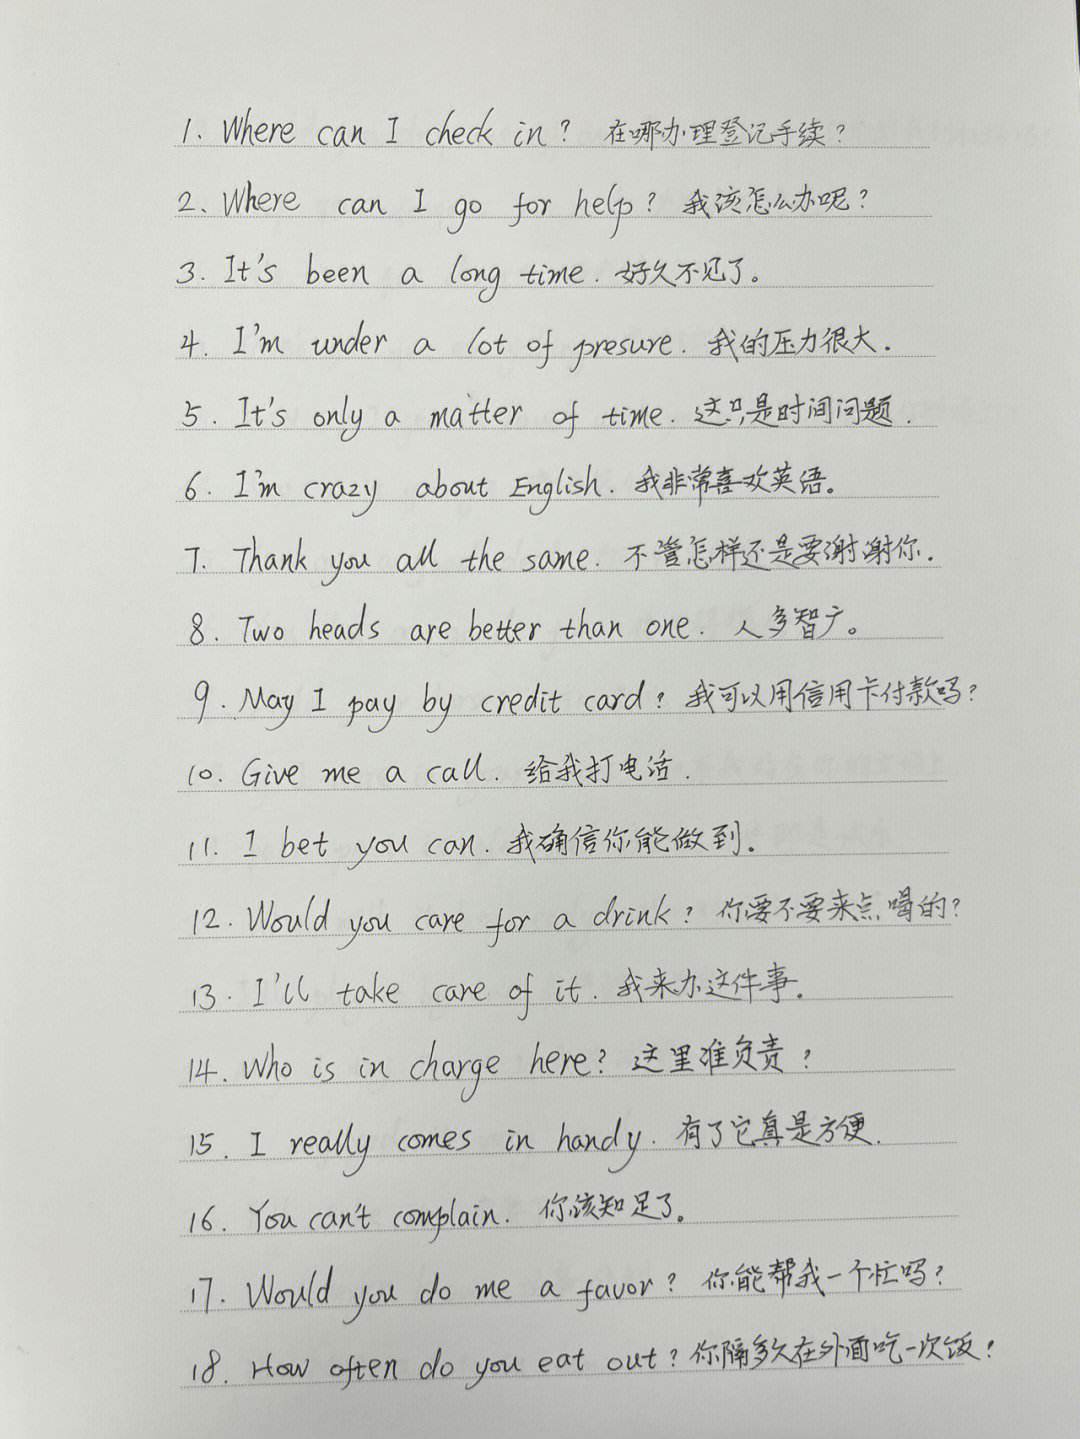 1. Where can I check in? 在哪办理登记手续?
2、Where can I go for help? 我该怎么办呢?
3. It's been a long time. 好久不见了。
4. I'm under a lot of presure. 我的压力很大.
5. It's only a matter of time. 这只是时间问题.
6. I'm crazy about English. 我非常喜欢英语。
7. Thank you all the same. 不管怎样还是要谢谢你.
8. Two heads are better than one. 人多智广。
9. May I pay by credit card? 我可以用信用卡付款吗?
10. Give me a call. 给我打电话.
11. I bet you can. 我确信你能做到.
12. Would you care for a drink? 你要不要来点喝的?
13. I'll take care of it. 我来办这件事.
14. Who is in charge here? 这里准负责?
15. I really comes in handy. 有了它真是方便.
16. You can't complain. 你该知足了。
17. Would you do me a favor? 你能帮我一个忙吗?
18. How often do you eat out? 你隔多久在外面吃一次饭?